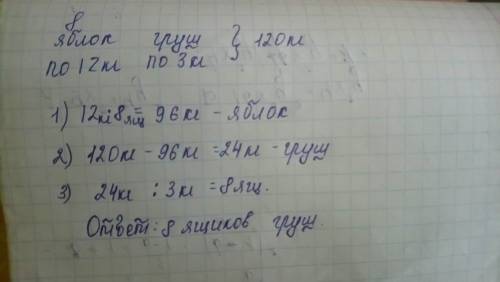 8
яблок груш } 120 кг
по 12 кг по 3 кг
1) 12кг·8ящ = 96 кг - яблок
2) 120кг - 96 кг = 24 кг - груш
3) 24кг : 3 кг = 8 ящ.
Ответ: 8 ящиков груш.